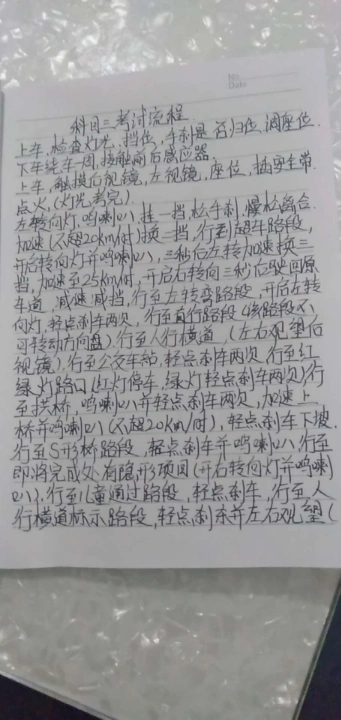 No.
Date
科目三考试流程
上车,检查灯光,挡位,手刹是否归位,调座位.
下车绕车一周,接触前后感应器
上车,触摸后视镜,左视镜,座位,插安全带.
点火,(灯光考完)
左转向灯,鸣喇叭,挂一挡,松手刹,慢松离合.
加速(不超20km/时)换二挡,行到超车路段,
开启转向灯并鸣喇叭,三秒后左转加速换三
挡,加速至25km/时,开启右转向三秒后驶回原
车道,减速减挡,行至左转弯路段,开启左转
向灯,轻点刹车两次,行至直行路段(该路段不
可转动方向盘).行至人行横道,(左右观望后
视镜).行至公交车站,轻点刹车两次,行至红
绿灯路口(红灯停车,绿灯轻点刹车两次)行
至拱桥,鸣喇叭并轻点刹车两次,加速上
桥并鸣喇叭(不超20km/时),轻点刹车下坡.
行至S形桥路段,轻点刹车并鸣喇叭,行至
即将完成处有隐形项目(开右转向灯并鸣喇
叭).行至儿童通过路段,轻点刹车,行至人
行横道标示路段,轻点刹车并左右观望(